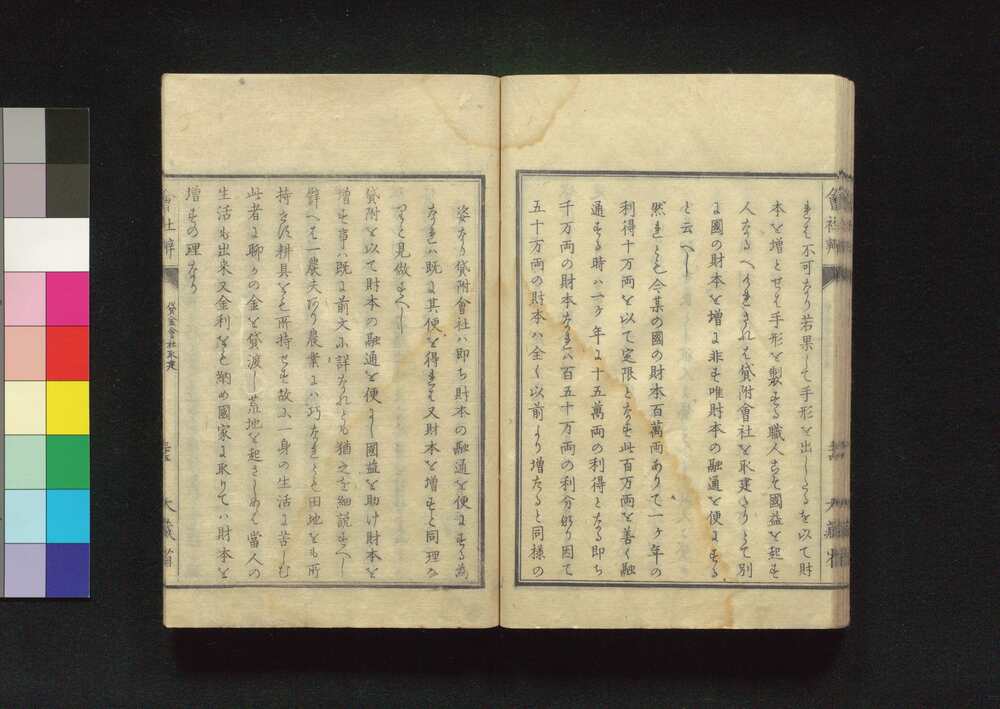 きハ不可なり若果して手形を出したるを以て財
本を増とせバ手形を製する職人こそ國益を起す
人なるへけれされハ貸附會社を取建さりとて別
に國の財本を増に非す唯財本の融通を便にする
と云へし
然れとも今某の國の財本百萬両ありて一ヶ年の
利得十万両を以て定限となす此百万両を善く融
通する時ハ一ヶ年に十五萬両の利得となる即ち
千万両の財本なれハ百五十万両の利分あり因て
五十万両の財本ハ全く以前より増たると同様の
會社辨
大藏省
姿なり貸附會社ハ即ち財本の融通を便にする為
なれハ既に其便を得れハ又財本を増すと同理な
りと見做すへし
貸附を以て財本の融通を便にし國益を助け財本を
増す事ハ既に前文に詳なれとも猶之を細説すへし
譬へハ一農夫あり農業にハ巧なれとも田地をも所
持せす耕具をも所持せす故に一身の生活に苦しむ
此者に聊かの金を貸渡し荒地を起さしめハ當人の
生活も出来又金利をも納め國家に取りてハ財本を
増すの理なり
會社辨
貸金會社取建
大藏省